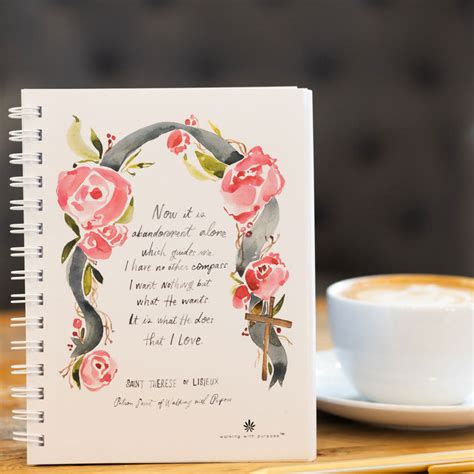 Now it is
abandonment alone
which guides me
I have no other compass.
I want nothing but
what He wants.
It is what He does
that I Love.
SAINT THERESE of LISIEUX
Patron Saint of Walking with Purpose
walking with purpose™